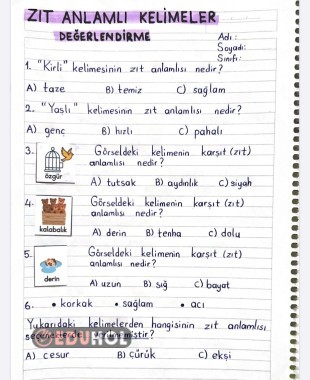 ZIT ANLAMLI KELİMELER
DEĞERLENDİRME
Adı:
Soyadı:
Sınıfı:
1. "Kirli" kelimesinin zıt anlamlısı nedir?
A) taze B) temiz C) sağlam
2. "Yaşlı" kelimesinin zıt anlamlısı nedir?
A) genç B) hızlı C) pahalı
3. Görseldeki kelimenin karşıt (zıt)
anlamlısı nedir?
özgür
A) tutsak B) aydınlık C) siyah
4. Görseldeki kelimenin karşıt (zıt)
anlamlısı nedir?
kalabalık
A) derin B) tenha C) dolu
5. Görseldeki kelimenin karşıt (zıt)
anlamlısı nedir?
derin
A) uzun B) sığ C) bayat
6. • korkak • sağlam • acı
Yukarıdaki kelimelerden hangisinin zıt anlamlısı
EDUHOL
A) cesur B) çürük C) ekşi